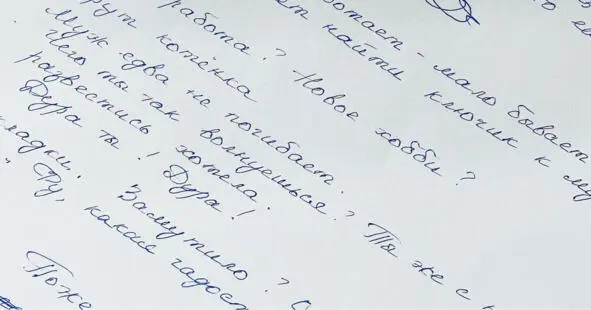 ботает - мало бывает
найти ключик к му
работа? Новое хобби?
котёнка
Муж едва не погибает.
Чего ты так волнуешься? Ты же с н
развестись хотела!
Дура ты! Дура!
кладки.
Замутило? С
Фу, какая гадост
Тоже